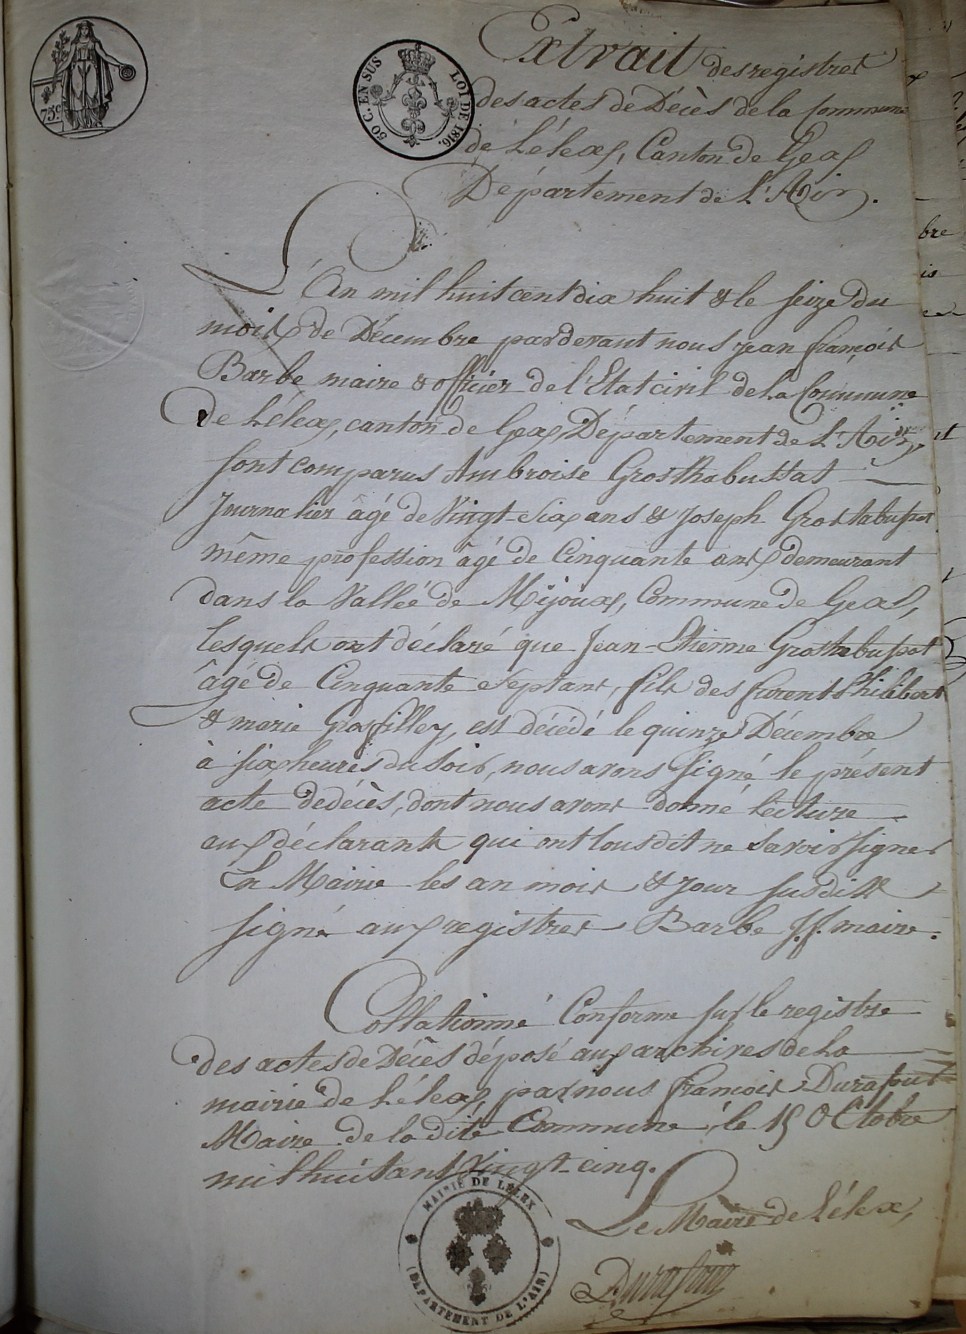 75c
50 C. EN SUS LOI DE 1816.
Extrait des registres
des actes de Décès de la Commune
de Lélex, Canton de Gex
Département de L'Ain.
L'An mil huit cent dix huit & le seize du
mois de Décembre pardevant nous jean françois
Barbe maire & officier de l'Etat civil de la Commune
de Lélex, canton de Gex Département de L'Ain,
sont comparus Ambroise Grosthabussat
Journalier âgé de Vingt-Six ans & Joseph Grostabussat
même profession âgé de Cinquante ans demeurant
dans la Vallée de Mijoux, Commune de Gex,
Lesquels ont déclaré que Jean-Etienne Grosthabussat
âgé de Cinquante Sept ans, fils des furent Philibert
& marie Grosfilley, est décédé le quinze Décembre
à six heures du Soir, nous avons signé le présent
acte de décès, dont nous avons donné Lecture
aux déclarants qui ont tous dit ne savoir signer
En Mairie les an mois & jour susdits
signé aux registres Barbe j.f. maire.
Collationné Conforme sur le registre
des actes de Décès déposé aux archives de la
mairie de Lélex par nous françois Durafour
Maire de la dite Commune, le 15 Octobre
mil huit cent Vingt-cinq.
Le Maire de Lélex,
Durafour
MAIRIE DE LÉLEX
(DÉPARTEMENT DE L'AIN)